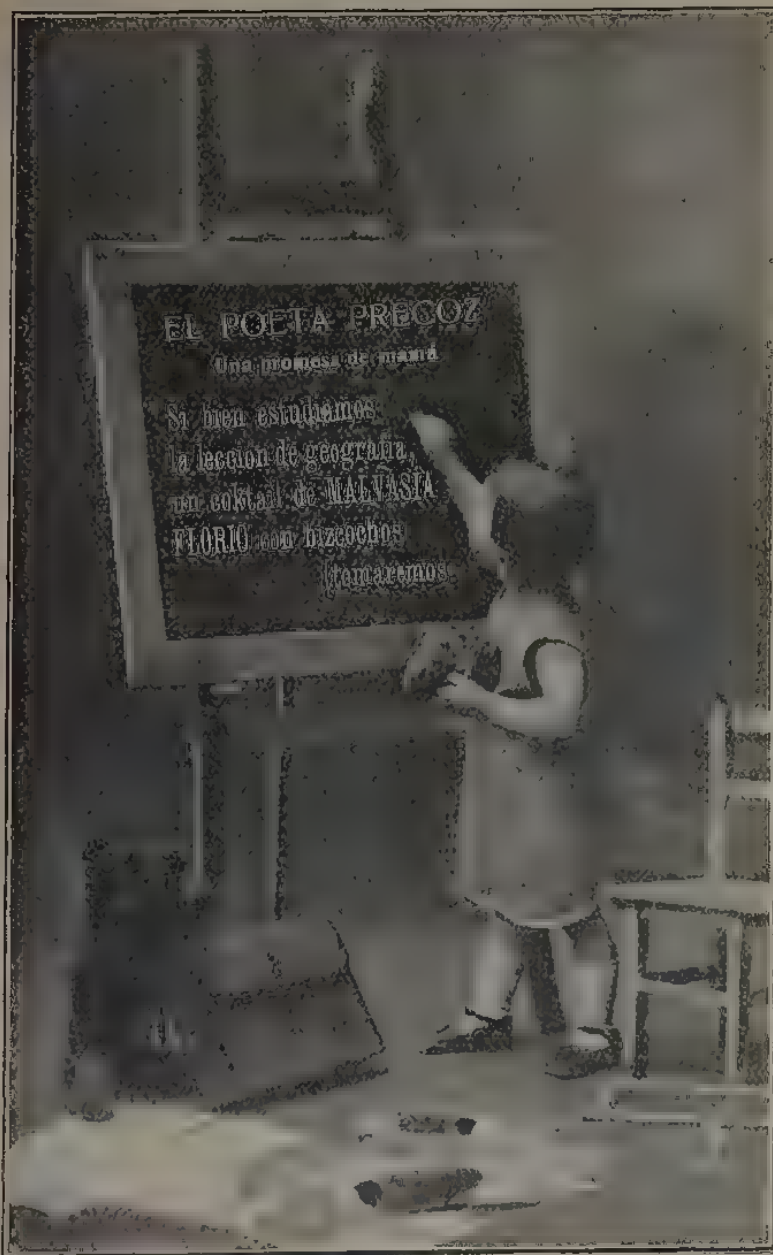 EL POETA PRECOZ
Una promesa de mamá
Si bien estudiamos
la leccion de geografia,
un coktail de MALVASIA
FLORIO con bizcochos
[tomaremos